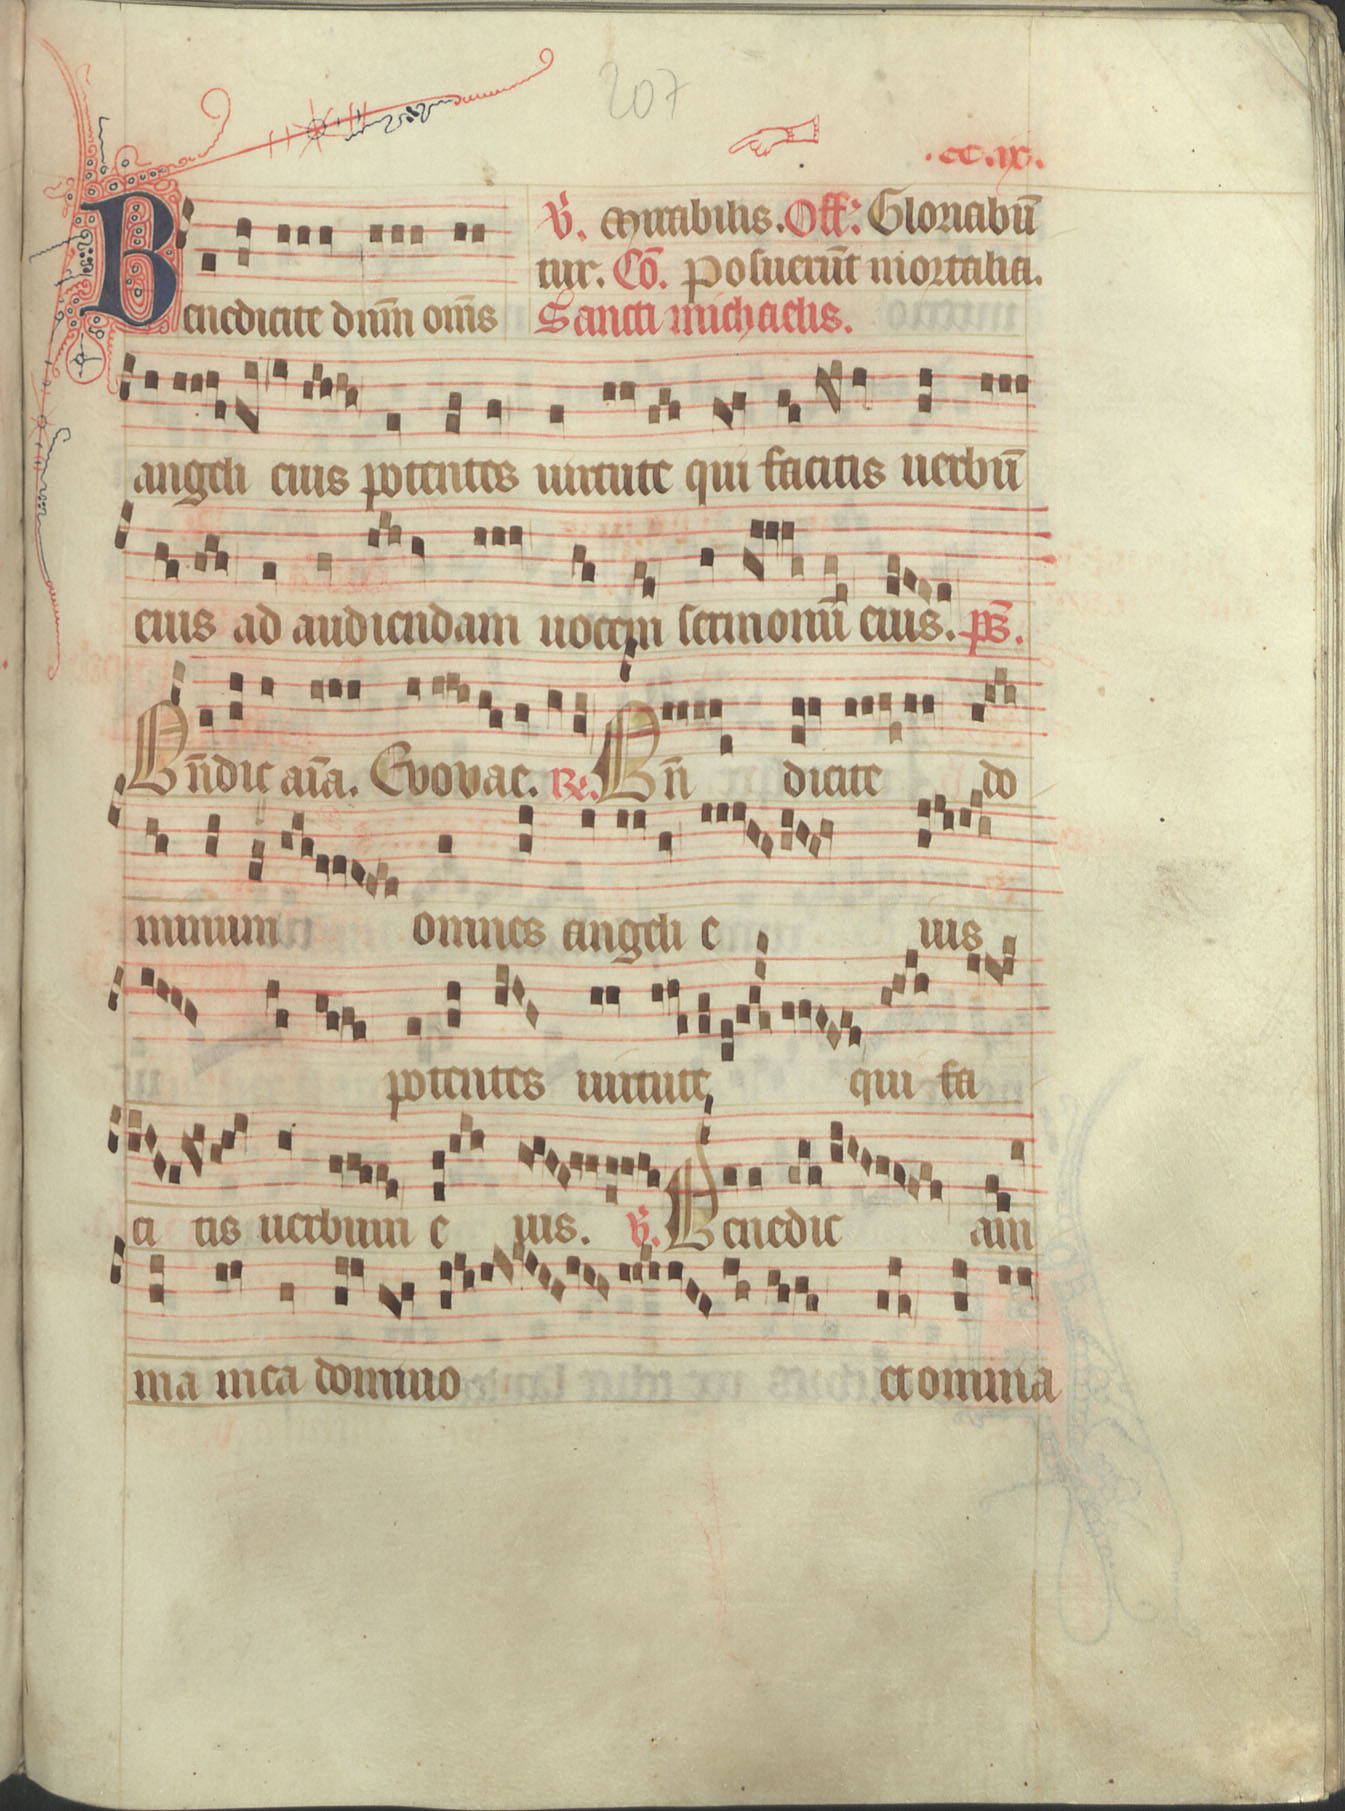 207
.cc.ix.
V̄. Mirabilis. Off̄: Gloriabū
tur. Cō. Posuerūt mortalia.
Benedicite dn̄m om̄s Sancti michaelis.
angeli eius potentes uirtute qui facitis uerbū
eius ad audiendam uocem sermonū eius. ps̄.
Bn̄dic aīa. Euouae. R̄. Bn̄ dicite do
minum omnes angeli e ius
potentes uirtute, qui fa
ci tis uerbum e ius. V̄. Benedic ani
ma mea domino et omnia